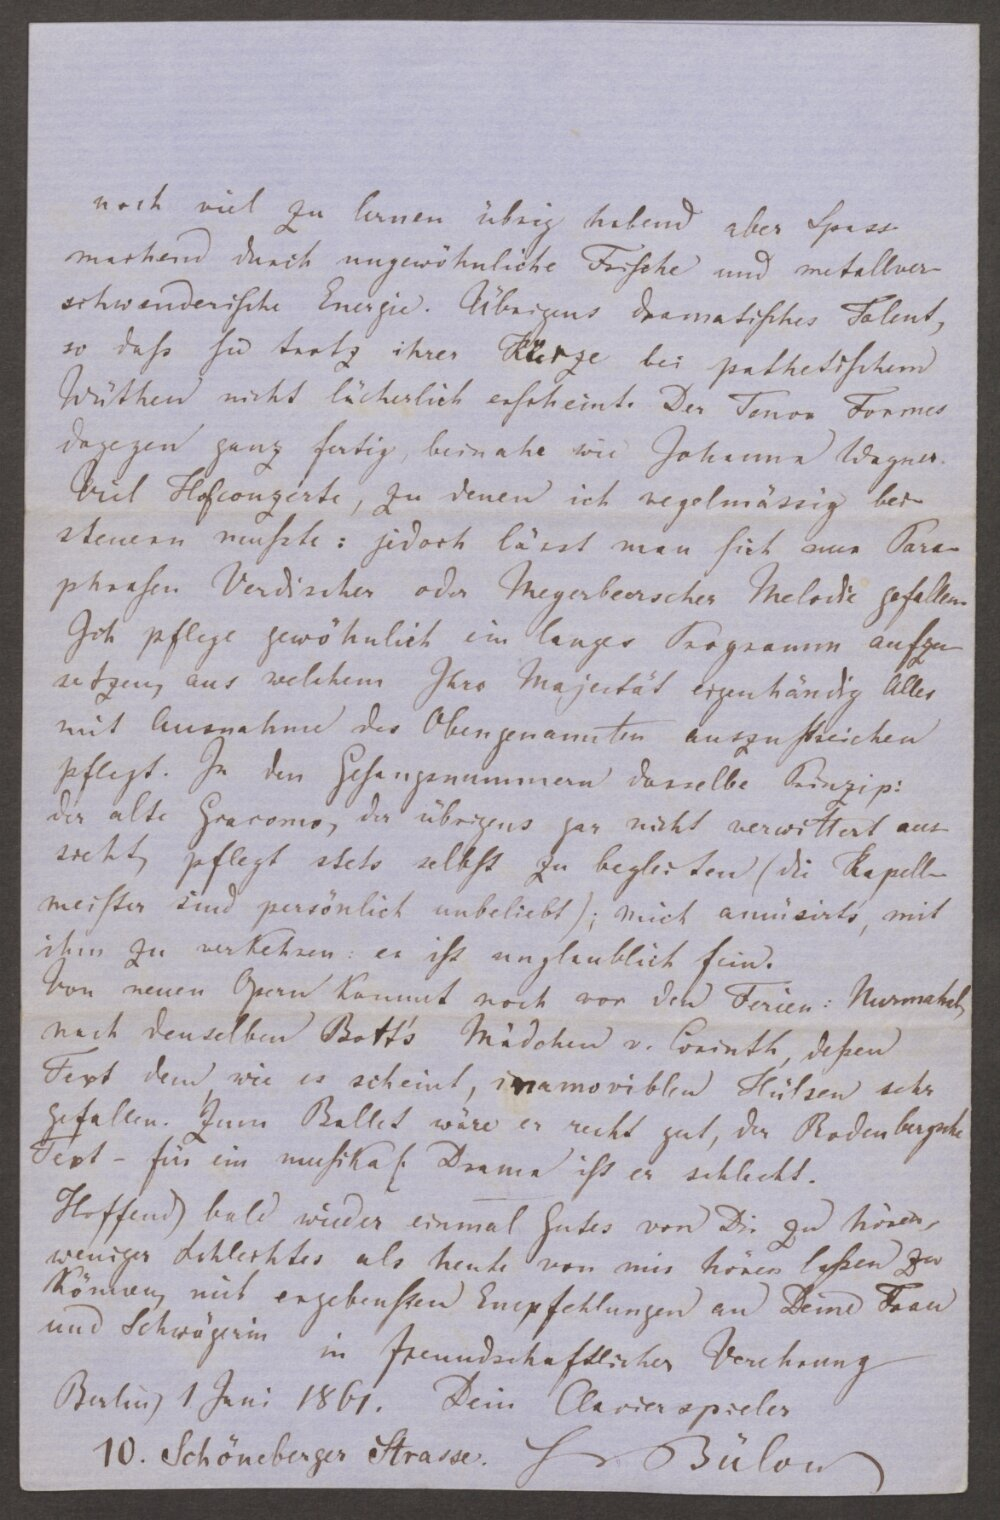 noch viel zu lernen übrig habend aber Spass
machend durch ungewöhnliche Frische und metallver-
schwenderische Energie. Übrigens dramatisches Talent,
so dass sie trotz ihrer Kürze bei pathetischem
Wüthen nicht lächerlich erscheint. Der Tenor Formes
dagegen ganz fertig, beinahe wie Johanna Wagner.
Viel Hofconzerte, zu denen ich regelmässig bei-
steuern musste: jedoch lässt man sich nur Para-
phrasen Verdischer oder Meyerbeerscher Melodie gefallen.
Ich pflege gewöhnlich ein langes Programm aufzu-
setzen, aus welchem Ihro Majestät eigenhändig Alles
mit Ausnahme des Obengenannten auszustreichen
pflegt. In den Gesangsnummern dasselbe Prinzip:
der alte Giacomo, der übrigens gar nicht verwittert aus-
sieht, pflegt stets selbst zu begleiten (die Kapell-
meister sind persönlich unbeliebt); mich amüsirts, mit
ihm zu verkehren: er ist unglaublich fein.
Von neuen Opern kommt noch vor den Ferien: Nurmahal,
nach denselben Bott's Mädchen v. Corinth, dessen
Text dem, wie es scheint, inamoviblen Hülsen sehr
gefallen. Zum Ballet wäre er recht gut, der Rodenbergsche
Text – für ein musikal. Drama ist er schlecht.
Hoffend bald wieder einmal Gutes von Dir zu hören,
weniger Schlechtes als heute von mir hören lassen zu
können, mit ergebensten Empfehlungen an Deine Frau
und Schwägerin
in freundschaftlicher Verehrung
Berlin, 1 Juni 1861. Dein Clavierspieler
10. Schöneberger Strasse. H v Bülow